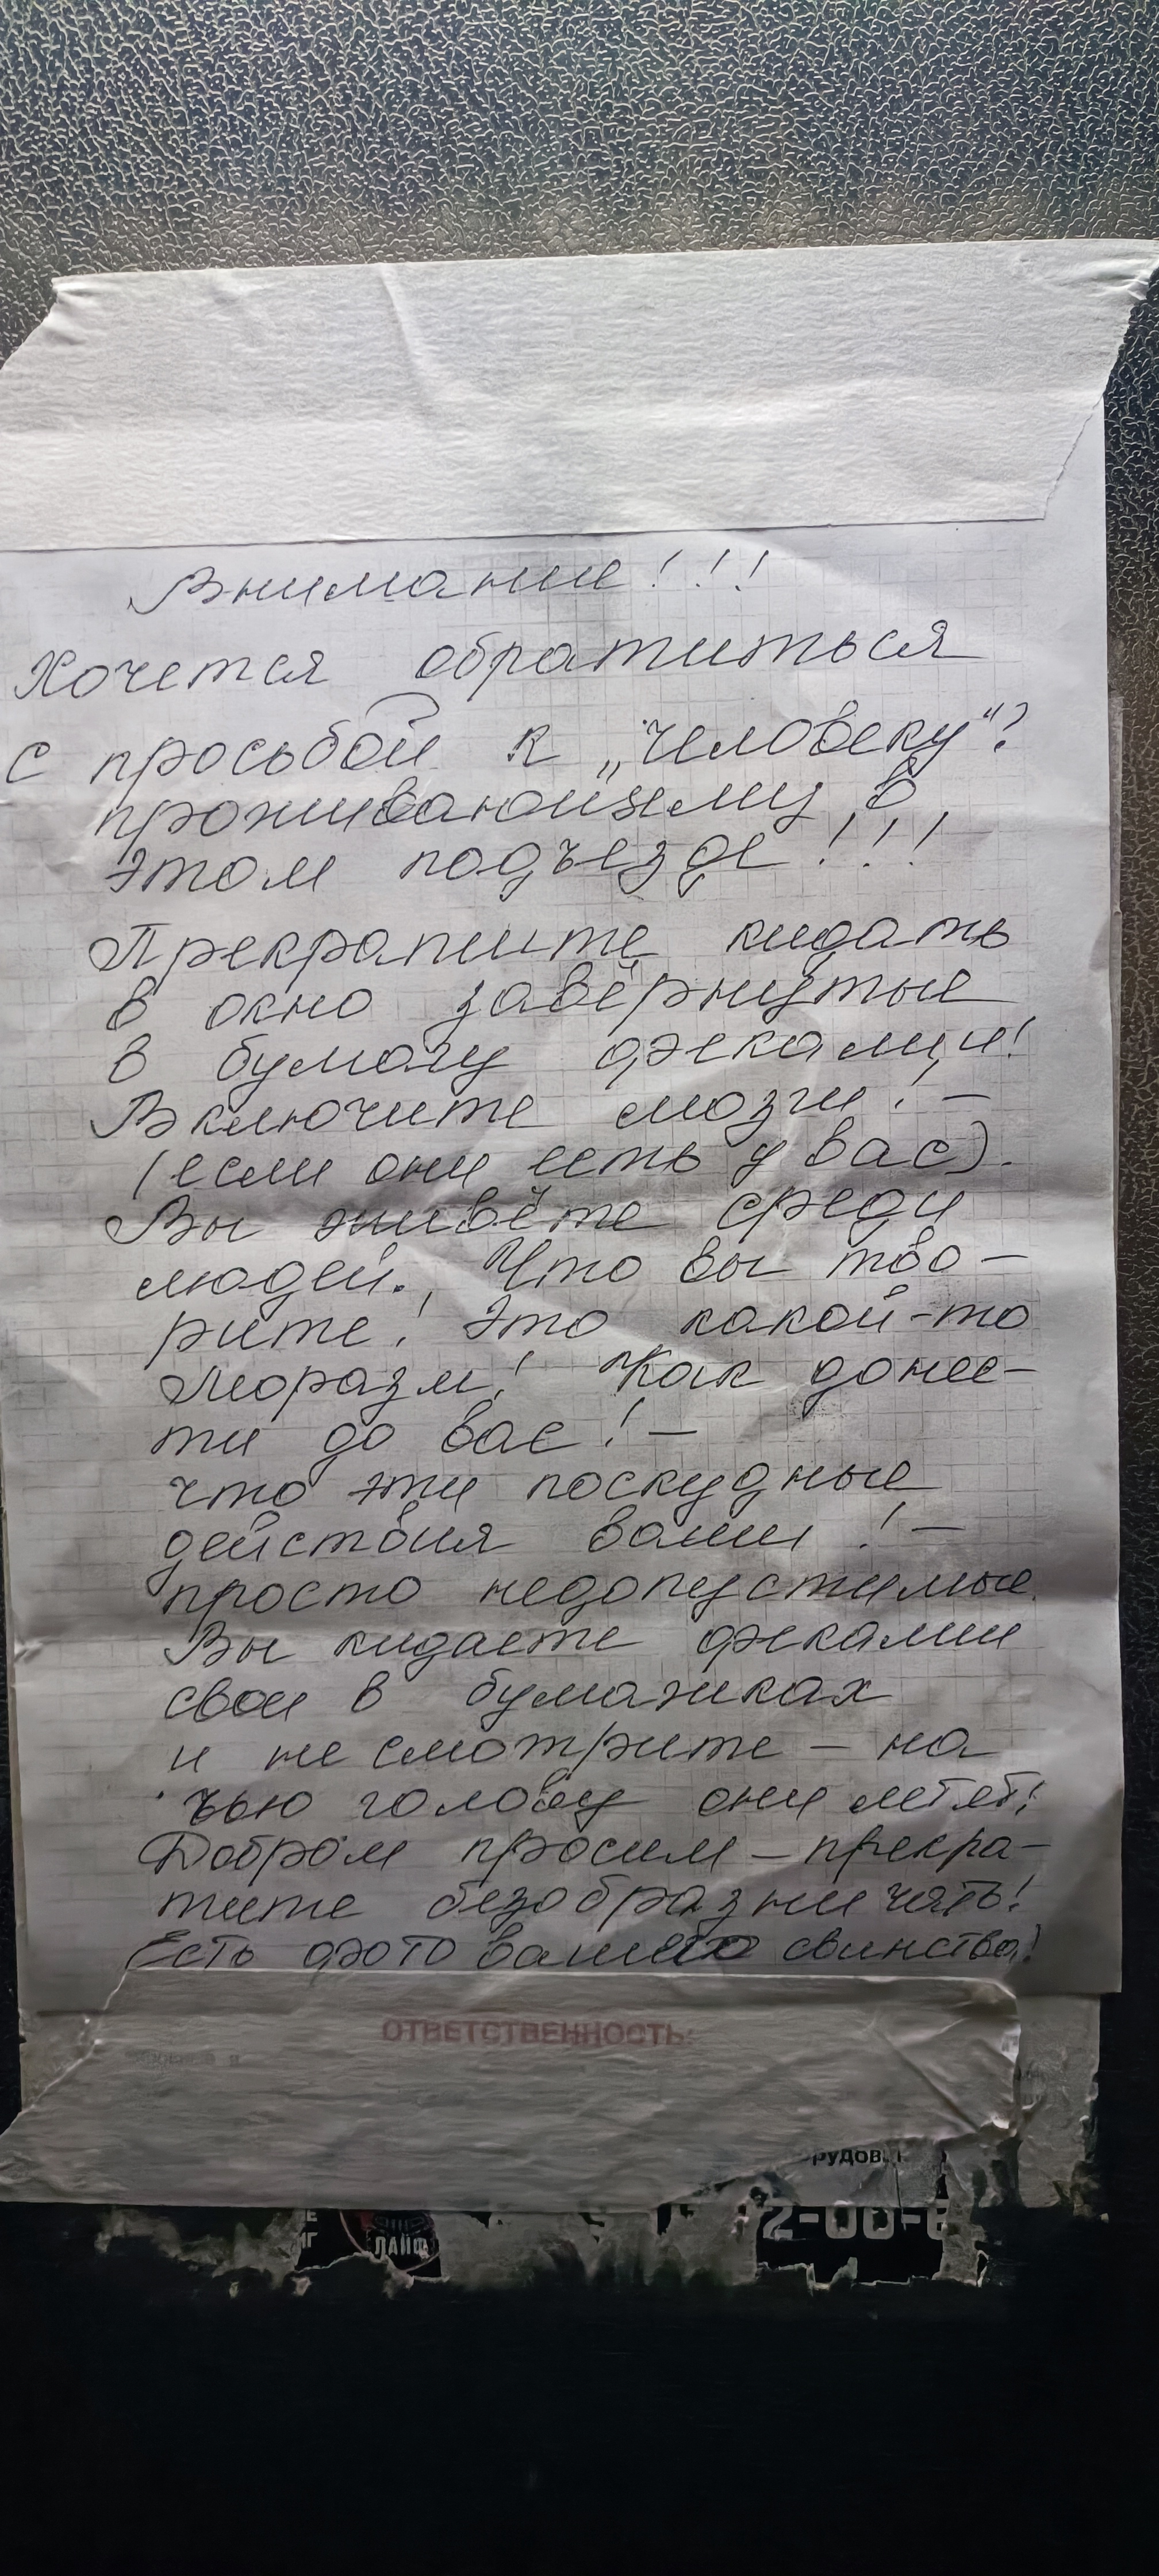 Внимание!!!
Хочется обратиться
с просьбой к „человеку"?
проживающему в
этом подъезде!!!
Прекратите кидать
в окно завёрнутые
в бумагу фекалии!
Включите мозги! –
(если они есть у вас).
Вы живёте среди
людей. Что вы тво-
рите! Это какой-то
Моразм! Как донес-
ти до вас! –
что эти поскудные
действия ваши! –
просто недопустимые.
Вы кидаете фекалии
свои в бумажках
и не смотрите – на
чью голову они летят!
Добром просим – прекра-
тите безобразничать!
Есть фото вашего свинства!
ОТВЕТСТВЕННОСТЬ:
ЛАЙФ